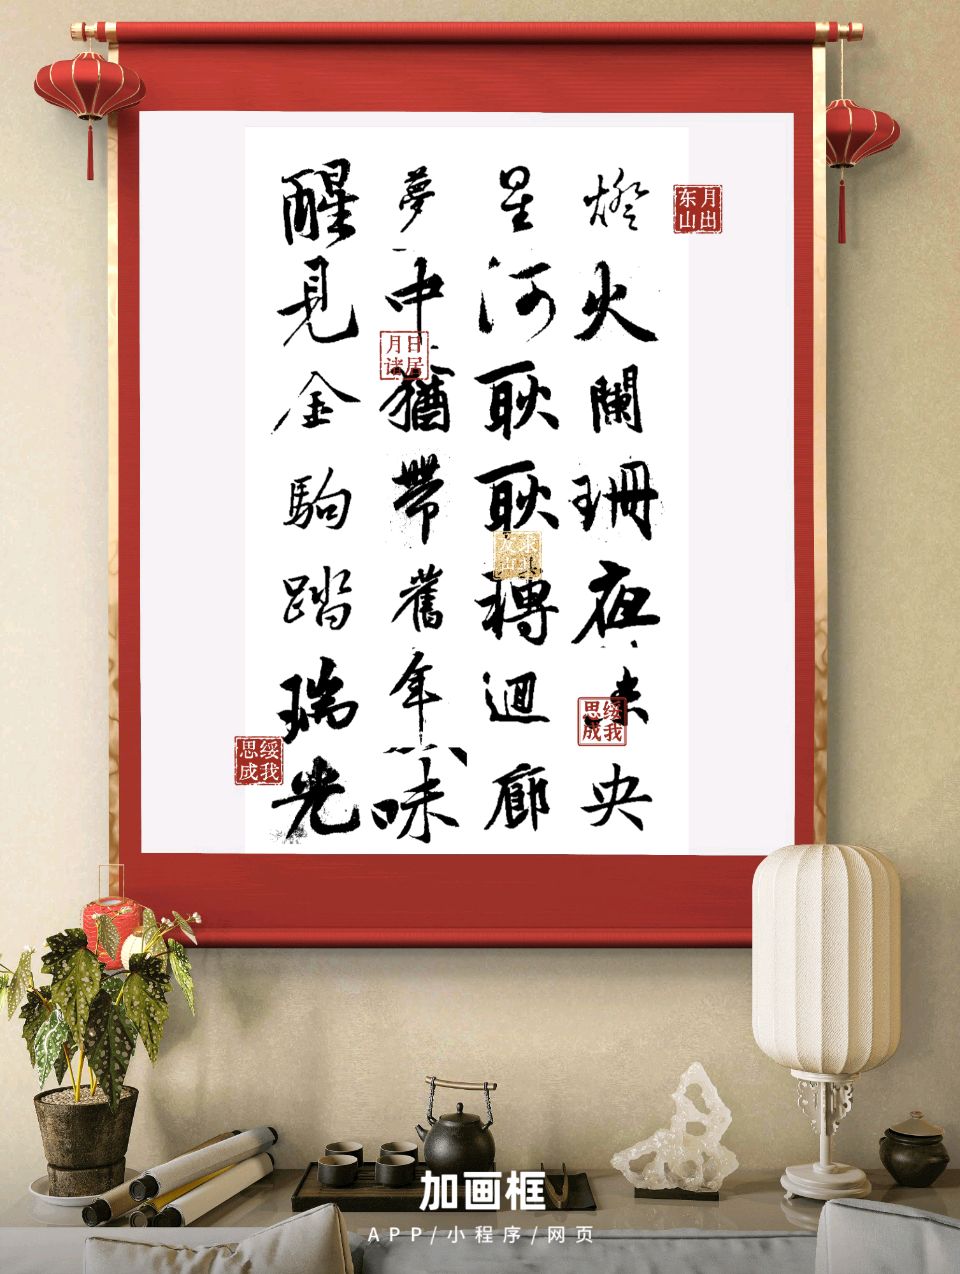 燈火闌珊夜未央
星河耿耿轉迴廊
夢中猶帶舊年味
醒見金駒踏瑞光
月出
东山
日居
月诸
绥我
思成
绥我
思成
加画框
APP/小程序/网页